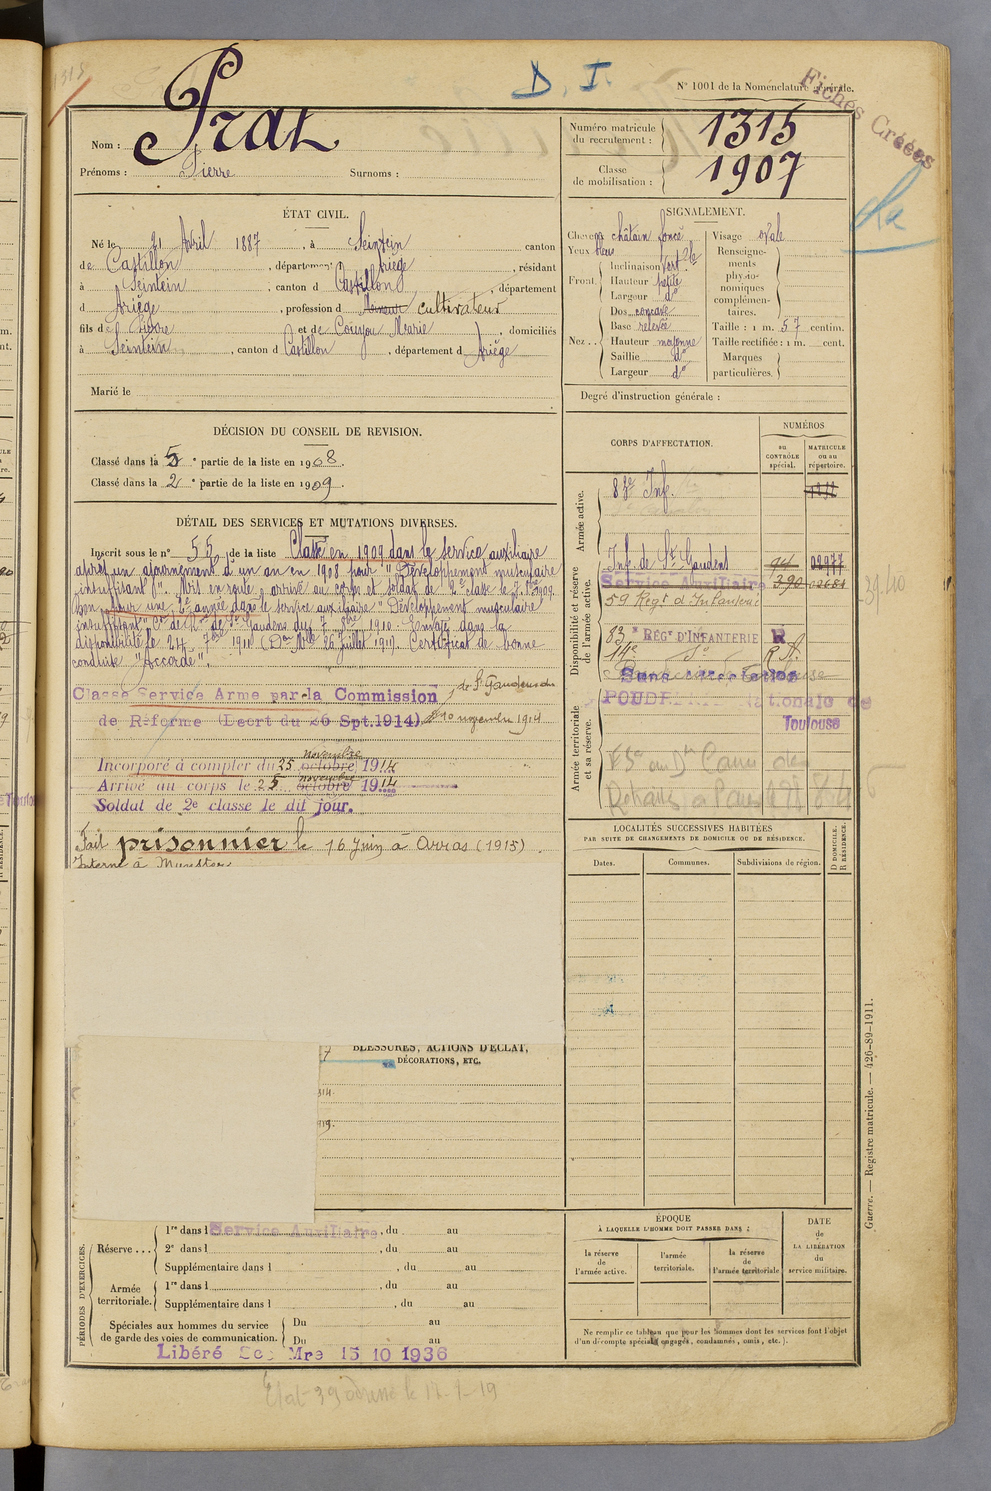 1315
D. I.
N° 1001 de la Nomenclature générale.
Fiches Créées
Nom : Prat
Prénoms : Pierre Surnoms :
Numéro matricule du recrutement : 1315
Classe de mobilisation : 1907
ÉTAT CIVIL.
Né le 21 Avril 1887, à Seintein canton
de Castillon, département Ariège, résidant
à Seintein, canton d Castillon, département
d Ariège, profession d cultivateur
fils de Pierre et de Coujou Marie, domiciliés
à Seintein, canton d Castillon, département d Ariège
Marié le
SIGNALEMENT.
Cheveux châtain foncé
Yeux bleus
Front. Inclinaison vert.ale
Hauteur petite
Largeur do
Nez.. Dos concave
Base relevée
Hauteur moyenne
Saillie do
Largeur do
Visage ovale
Renseignements physionomiques complémentaires.
Taille : 1 m. 57 centim.
Taille rectifiée : 1 m. cent.
Marques particulières.
Degré d'instruction générale :
DÉCISION DU CONSEIL DE REVISION.
Classé dans la 5 e partie de la liste en 1908.
Classé dans la 2 e partie de la liste en 1909.
DÉTAIL DES SERVICES ET MUTATIONS DIVERSES.
Inscrit sous le n° 55 de la liste Classé en 1909 dans le service auxiliaire
après un ajournement d'un an en 1908 pour "Développement musculaire
insuffisant". Mis en route, arrivé au corps et soldat de 2e classe le
Bon pour une 2e année dans le service auxiliaire "Développement musculaire
insuffisant" de St Gaudens du 7 1910. Envoyé dans la
disponibilité le 24 7bre 1911 (Don Mlle 26 Juillet 1911). Certificat de bonne
conduite "Accordé".
Classe Service Armé par la Commission de St Gaudens du
de Réforme (Décret du 26 Spt.1914) 10 novembre 1914
Incorporé à compter du 25 octobre novembre 1914
Arrivé au corps le 25 octobre novembre 1914
Soldat de 2e classe le dit jour.
Fait prisonnier le 16 Juin à Arras (1915).
Interné à Munster
BLESSURES, ACTIONS D'ÉCLAT,
DÉCORATIONS, ETC.
CORPS D'AFFECTATION.
NUMÉROS
au CONTRÔLE spécial.
MATRICULE ou au répertoire.
Armée active.
83e Inf.
Disponibilité et réserve de l'armée active.
Inf. de St Gaudens 94 02977
Service Auxiliaire 390
59 Régt d'Infanterie
83 e RÉGt D'INFANTERIE R
14e do
Armée territoriale et sa réserve.
Sans affectation
POUDRERIE Nationale de
Toulouse
LOCALITÉS SUCCESSIVES HABITÉES
PAR SUITE DE CHANGEMENTS DE DOMICILE OU DE RÉSIDENCE.
D DOMICILE. R RÉSIDENCE.
Dates. Communes. Subdivisions de région.
PÉRIODES D'EXERCICES.
Réserve ... 1re dans l Service Auxiliaire, du au
2e dans l , du au
Supplémentaire dans l , du au
Armée territoriale. 1re dans l , du au
Supplémentaire dans l , du au
Spéciales aux hommes du service de garde des voies de communication. Du au
Du au
Libéré Mre 15 10 1936
ÉPOQUE
À LAQUELLE L'HOMME DOIT PASSER DANS :
la réserve de l'armée active.
l'armée territoriale.
la réserve de l'armée territoriale
DATE de LA LIBÉRATION du service militaire.
Ne remplir ce tableau que pour les hommes dont les services font l'objet
d'un décompte spécial (engagés, condamnés, omis, etc.).
Guerre. — Registre matricule. — 426-89-1911.
Etat 39 adressé le 17-1-19